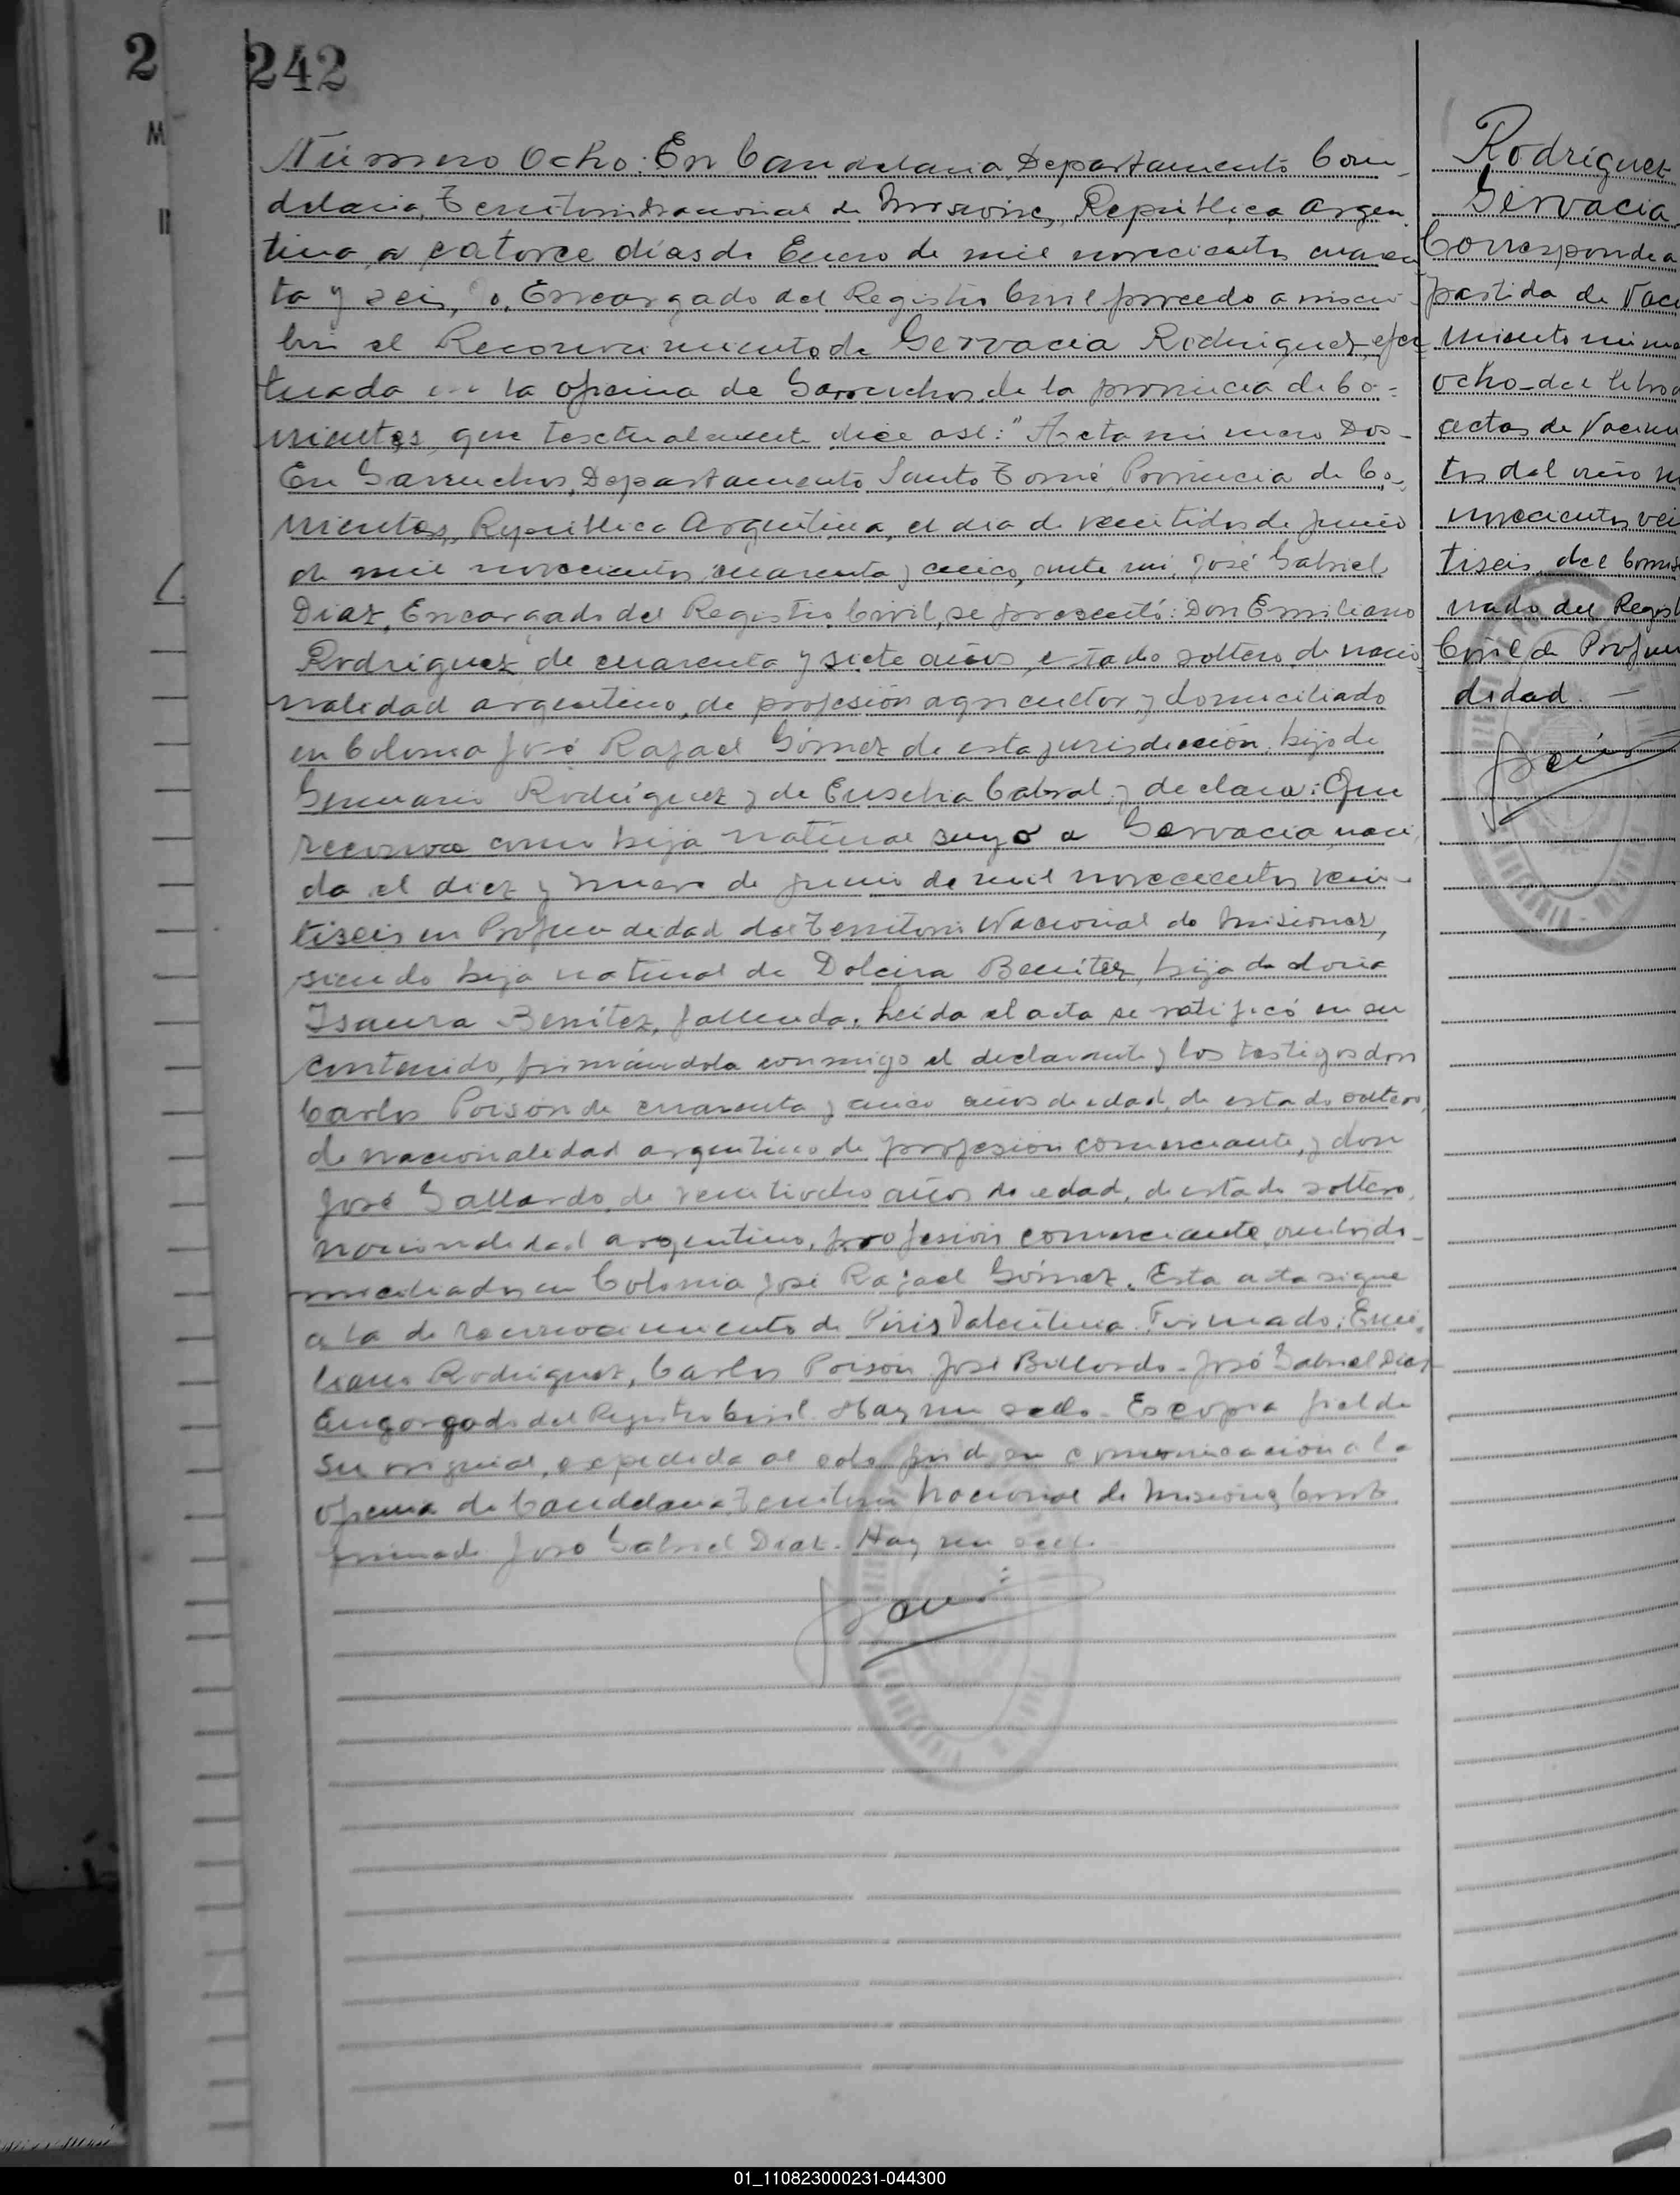 2
242
M
Número Ocho: En Candelaria, Departamento Can-
delaria, Territorio Nacional de Misiones, República Argen-
tina, a catorce días de Enero de mil novecientos cuaren
ta y seis, Yo, Encargado del Registro Civil procedo a inscri-
bir el Reconocimiento de Gervacia Rodriguez, efec
tuada en la oficina de Garruchos, de la provincia de Co-
rrientes, que textualmente dice así: "Acta número Dos-
En Garruchos, Departamento Santo Tomé, Provincia de Co-
rrientes, República Argentina, el día de veintidos de Junio
de mil novecientos cuarenta y cinco, ante mi, José Gabriel
Diaz, Encargado del Registro Civil, se presentó: Don Emiliano
Rodriguez de cuarenta y siete años, estado soltero, de nacio
nalidad argentino, de profesión agricultor y domiciliado
en Colonia José Rafael Gómez de esta jurisdicción, hijo de
Rodriguez y de Eusebia Cabral; y declara: Que
reconoce como hija natural suya a Gervacia, naci
da el diez y nueve de junio de mil novecientos vein-
tiseis en Profundidad del Territorio Nacional de Misiones,
siendo hija natural de Dolcira Benitez, hija de doña
Isaura Benítez, fallecida. Leída el acta se ratificó en su
contenido, firmándola conmigo el declarante y los testigos don
Carlos Poisón de cuarenta y cinco años de edad, de estado soltero,
de nacionalidad argentino, de profesión comerciante, y don
José Gallardo, de veintiocho años de edad, de estado soltero,
nacionalidad argentino, profesión comerciante, ambos do-
miciliados en Colonia José Rafael Gómez. Esta acta sigue
a la de reconocimiento de Piris Valentina. Firmado: Emi-
liano Rodriguez, Carlos Poisón José Gallardo - José Gabriel Diaz
Engargado del Registro Civil. Hay un sello - Es copia fiel de
su original, expedida al solo fin de su comunicación a la
oficina de Candelaria, Territorio Nacional de Misiones
firmado José Gabriel Diaz. Hay un sello.
Rodríguez
Gervacia
Corresponde a
partida de Naci
miento núme
ocho del libro d
actas de Nacimi
tos del año m
novecientos vei
tiseis, del
nado del Regist
Civil de Profun
didad. —
01_110823000231-044300